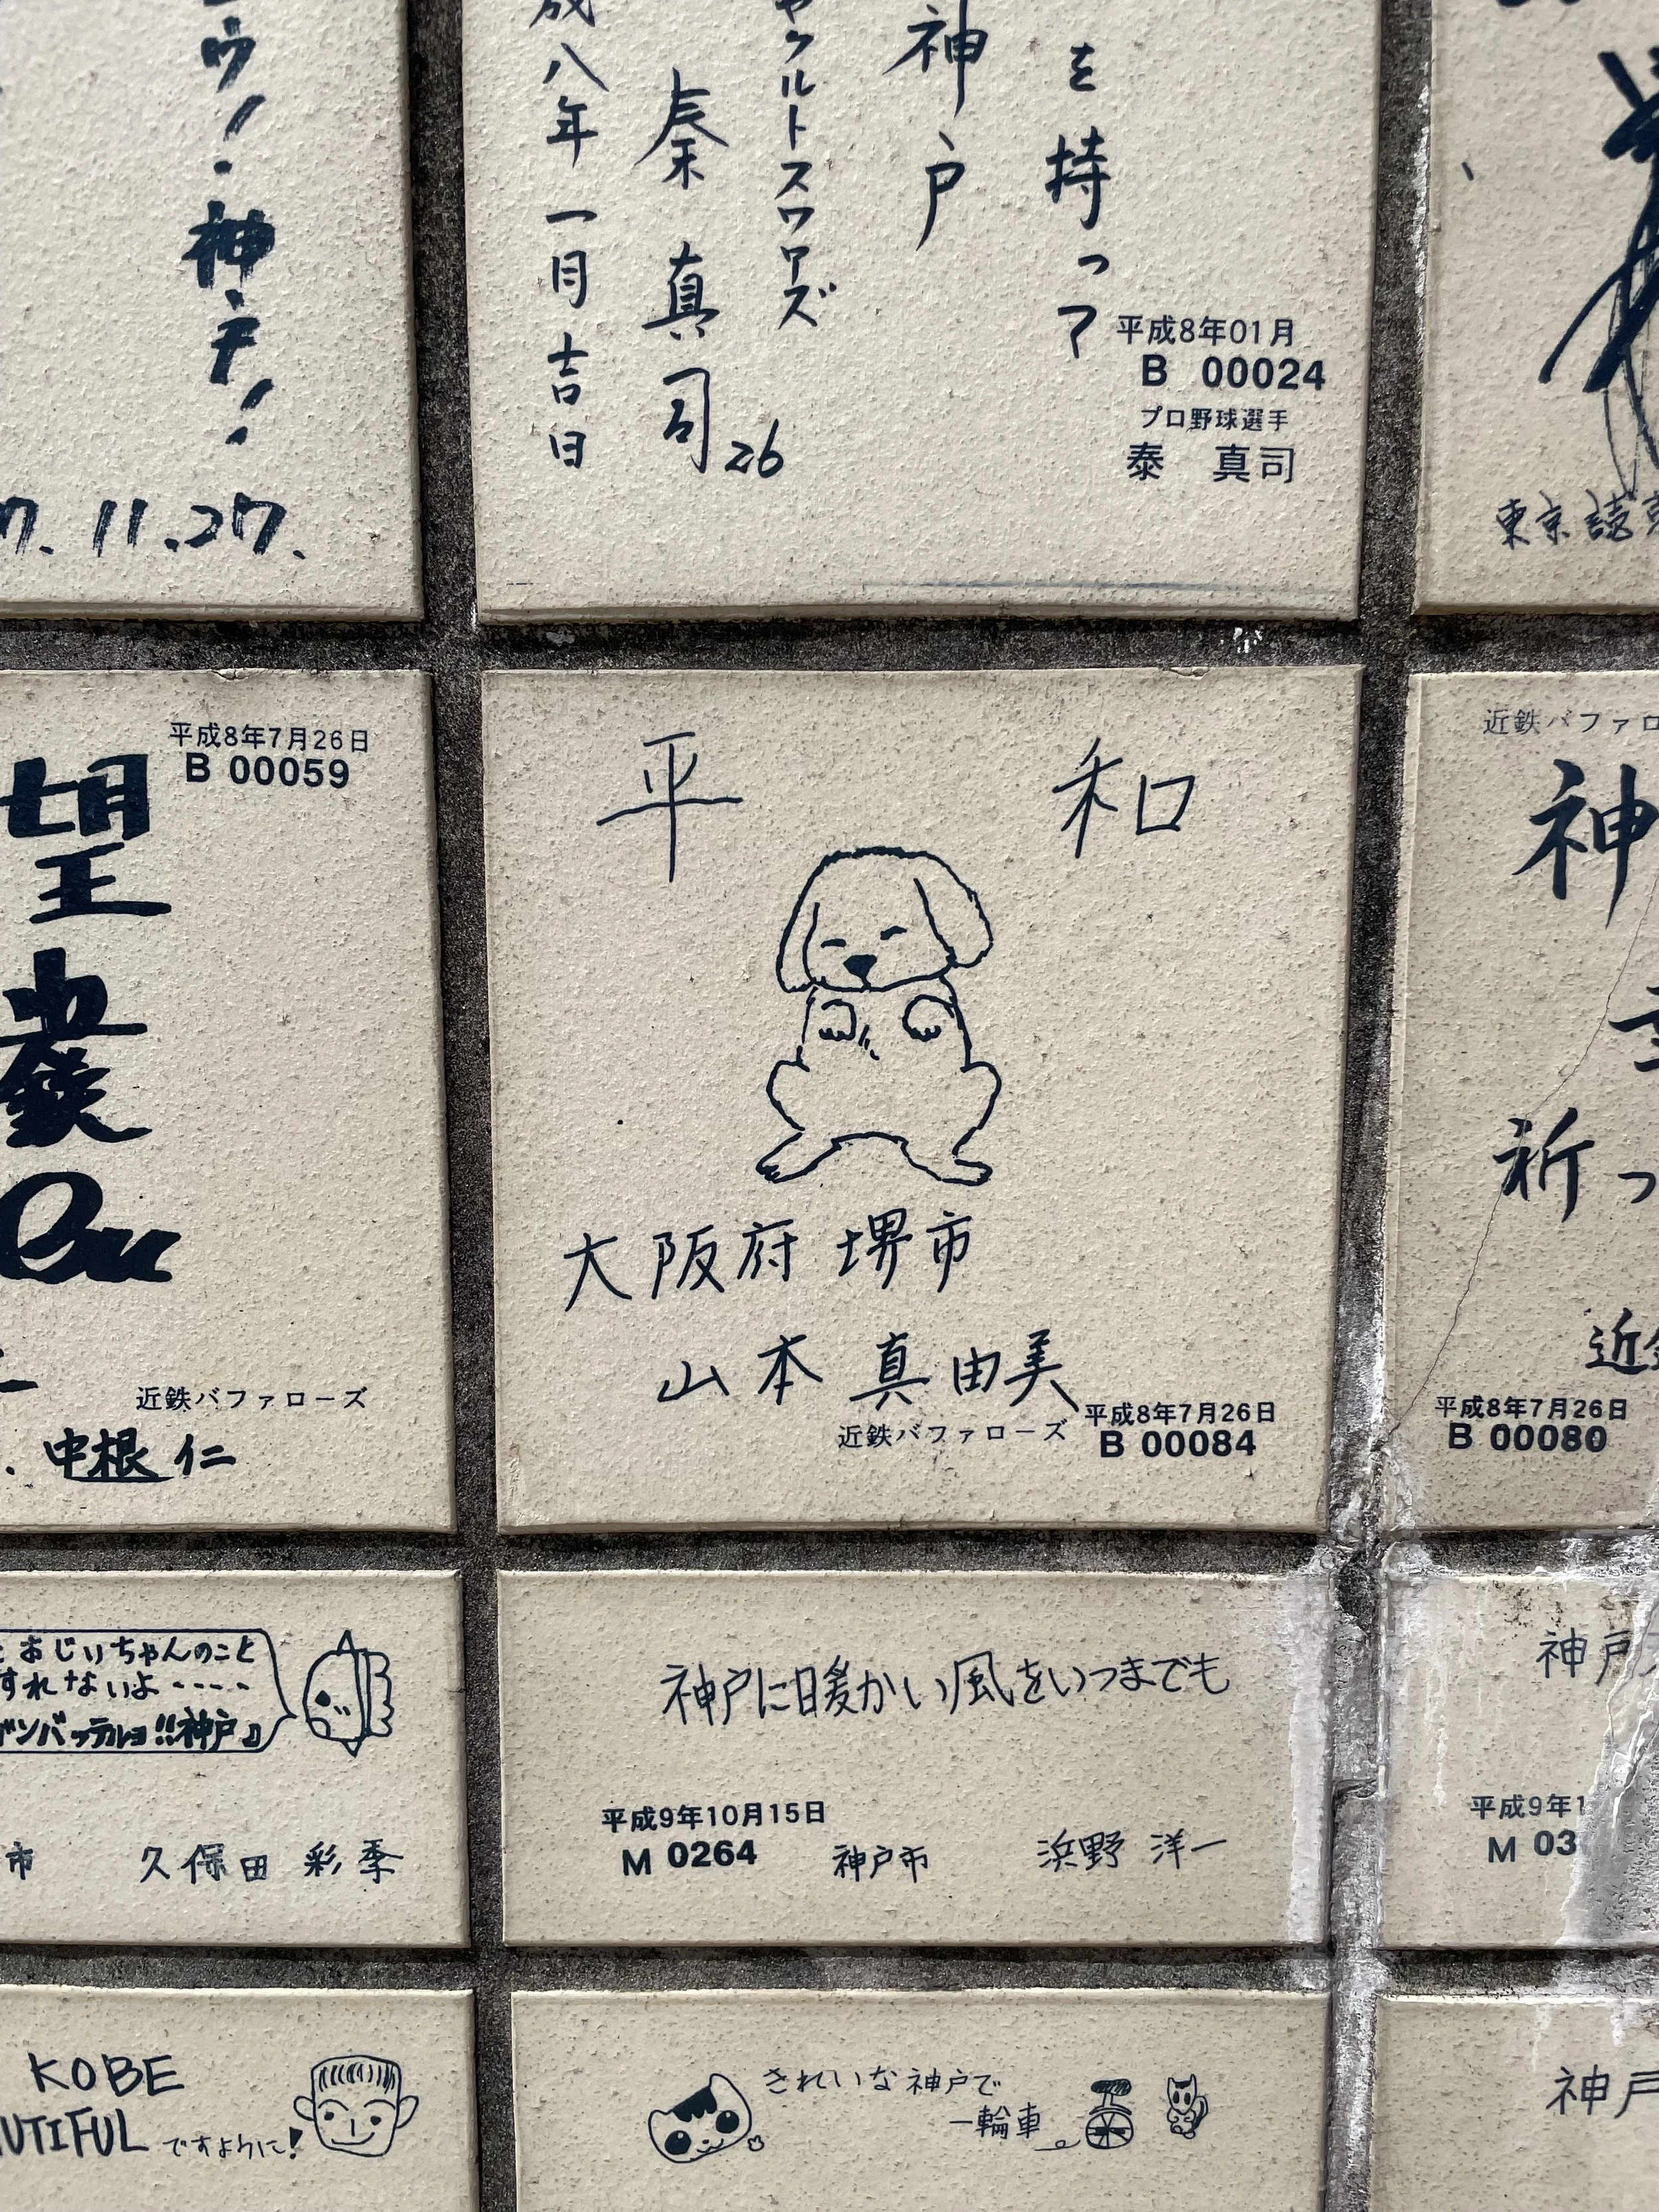 神戸!
11.27.
を持って
神戸
ヤクルトスワローズ
秦真司26
成八年一月吉日
平成8年01月
B 00024
プロ野球選手
泰 真司
東京読売
平成8年7月26日
B 00059
望
近鉄バファローズ
中根 仁
平 和
大阪府 堺市
山本 真由美
近鉄バファローズ
平成8年7月26日
B 00084
近鉄バファロ
神
祈っ
近鉄
平成8年7月26日
B 00080
おじいちゃんのこと
すれないよ----
ガンバッテルヨ!!神戸♪
市 久保田 彩季
神戸に暖かい風をいつまでも
平成9年10月15日
M 0264
神戸市 浜野 洋一
神戸
平成9年1
M 03
KOBE
UTIFUL ですように!
きれいな神戸で
一輪車
神戸